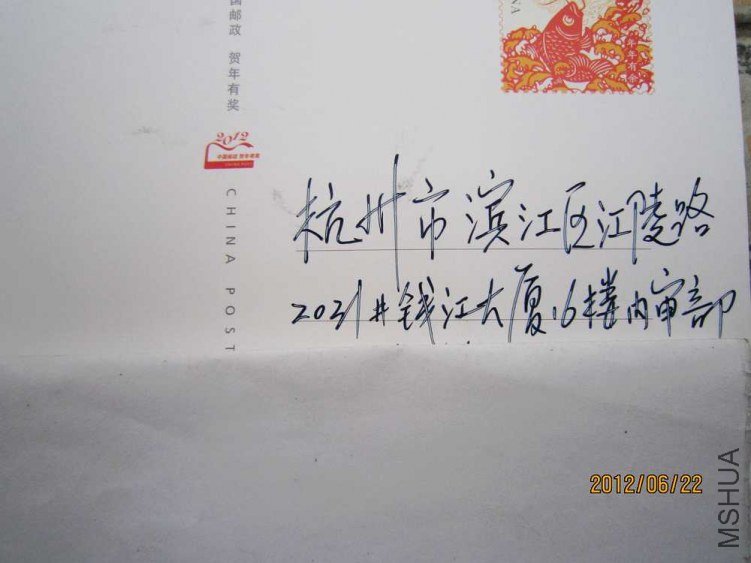 国邮政 贺年有奖
NA
年年有余
2012
中国邮政 贺年有奖
CHINA POST
CHINA POST
杭州市滨江区江陵路
2031#钱江大厦16楼内审部
2012/06/22
MSHUA